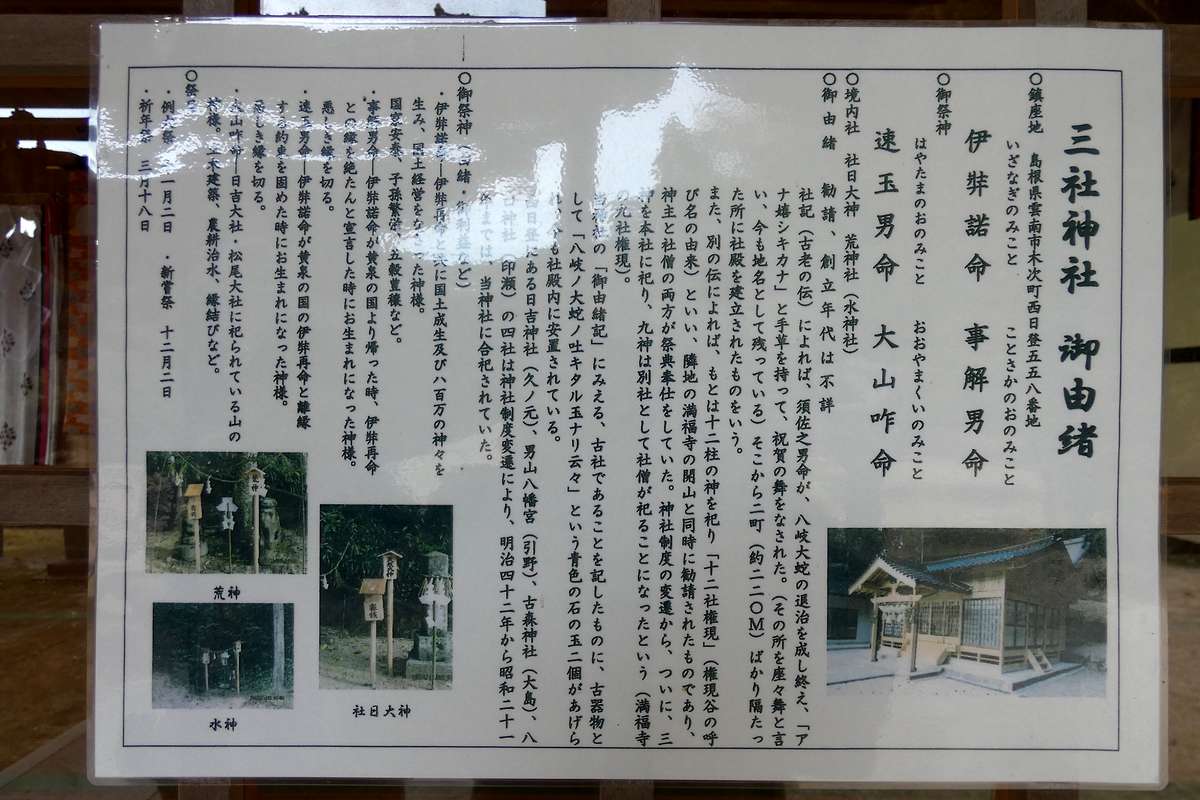 三社神社 御由緒
〇鎮座地 島根県雲南市木次町西日登五五八番地
〇御祭神
いざなぎのみこと ことさかのおのみこと
伊弉諾命 事解男命
はやたまのおのみこと おおやまくいのみこと
速玉男命 大山咋命
〇境内社 社日大神 荒神社(水神社)
〇御由緒 勧請、創立年代は不詳
社記(古老の伝)によれば、須佐之男命が、八岐大蛇の退治を成し終え、「ア
ナ嬉シキカナ」と手草を持って、祝賀の舞をなされた。(その所を座々舞と言
い、今も地名として残っている)そこから二町(約二二〇M)ばかり隔たっ
た所に社殿を建立されたものをいう。
また、別の伝によれば、もとは十二柱の神を祀り「十二社権現」(権現谷の呼
び名の由来)といい、隣地の満福寺の開山と同時に勧請されたものであり、
神主と社僧の両方が祭典奉仕をしていた。神社制度の変遷から、ついに、三
神を本社に祀り、九神は別社として社僧が祀ることになったという(満福寺
の九社権現)。
当神社の「御由緒記」にみえる、古社であることを記したものに、古器物と
して「八岐ノ大蛇ノ吐キタル玉ナリ云々」という青色の石の玉二個があげら
れ、今も社殿内に安置されている。
西日登にある日吉神社(久ノ元)、男山八幡宮(引野)、古森神社(大島)、八
口神社(印瀬)の四社は神社制度変遷により、明治四十二年から昭和二十一
年までは、当神社に合祀されていた。
〇御祭神(由緒・御利益など)
・伊弉諾命―伊弉再命と共に国土成生及び八百万の神々を
生み、国土経営をなさった神様。
国家安泰、子孫繁栄、五穀豊穣など。
・事解男命―伊弉諾命が黄泉の国より帰った時、伊弉再命
との縁を絶たんと宣言した時にお生まれになった神様。
悪しき縁を切る。
・速玉男命―伊弉諾命が黄泉の国の伊弉再命と離縁
する約束を固めた時にお生まれになった神様。
悪しき縁を切る。
・大山咋命―日吉大社・松尾大社に祀られている山の
神様。土木建築、農耕治水、縁結びなど。
〇祭日
・例大祭 十一月二日 ・新嘗祭 十二月二日
・祈年祭 三月十八日
荒神
水神
社日大神